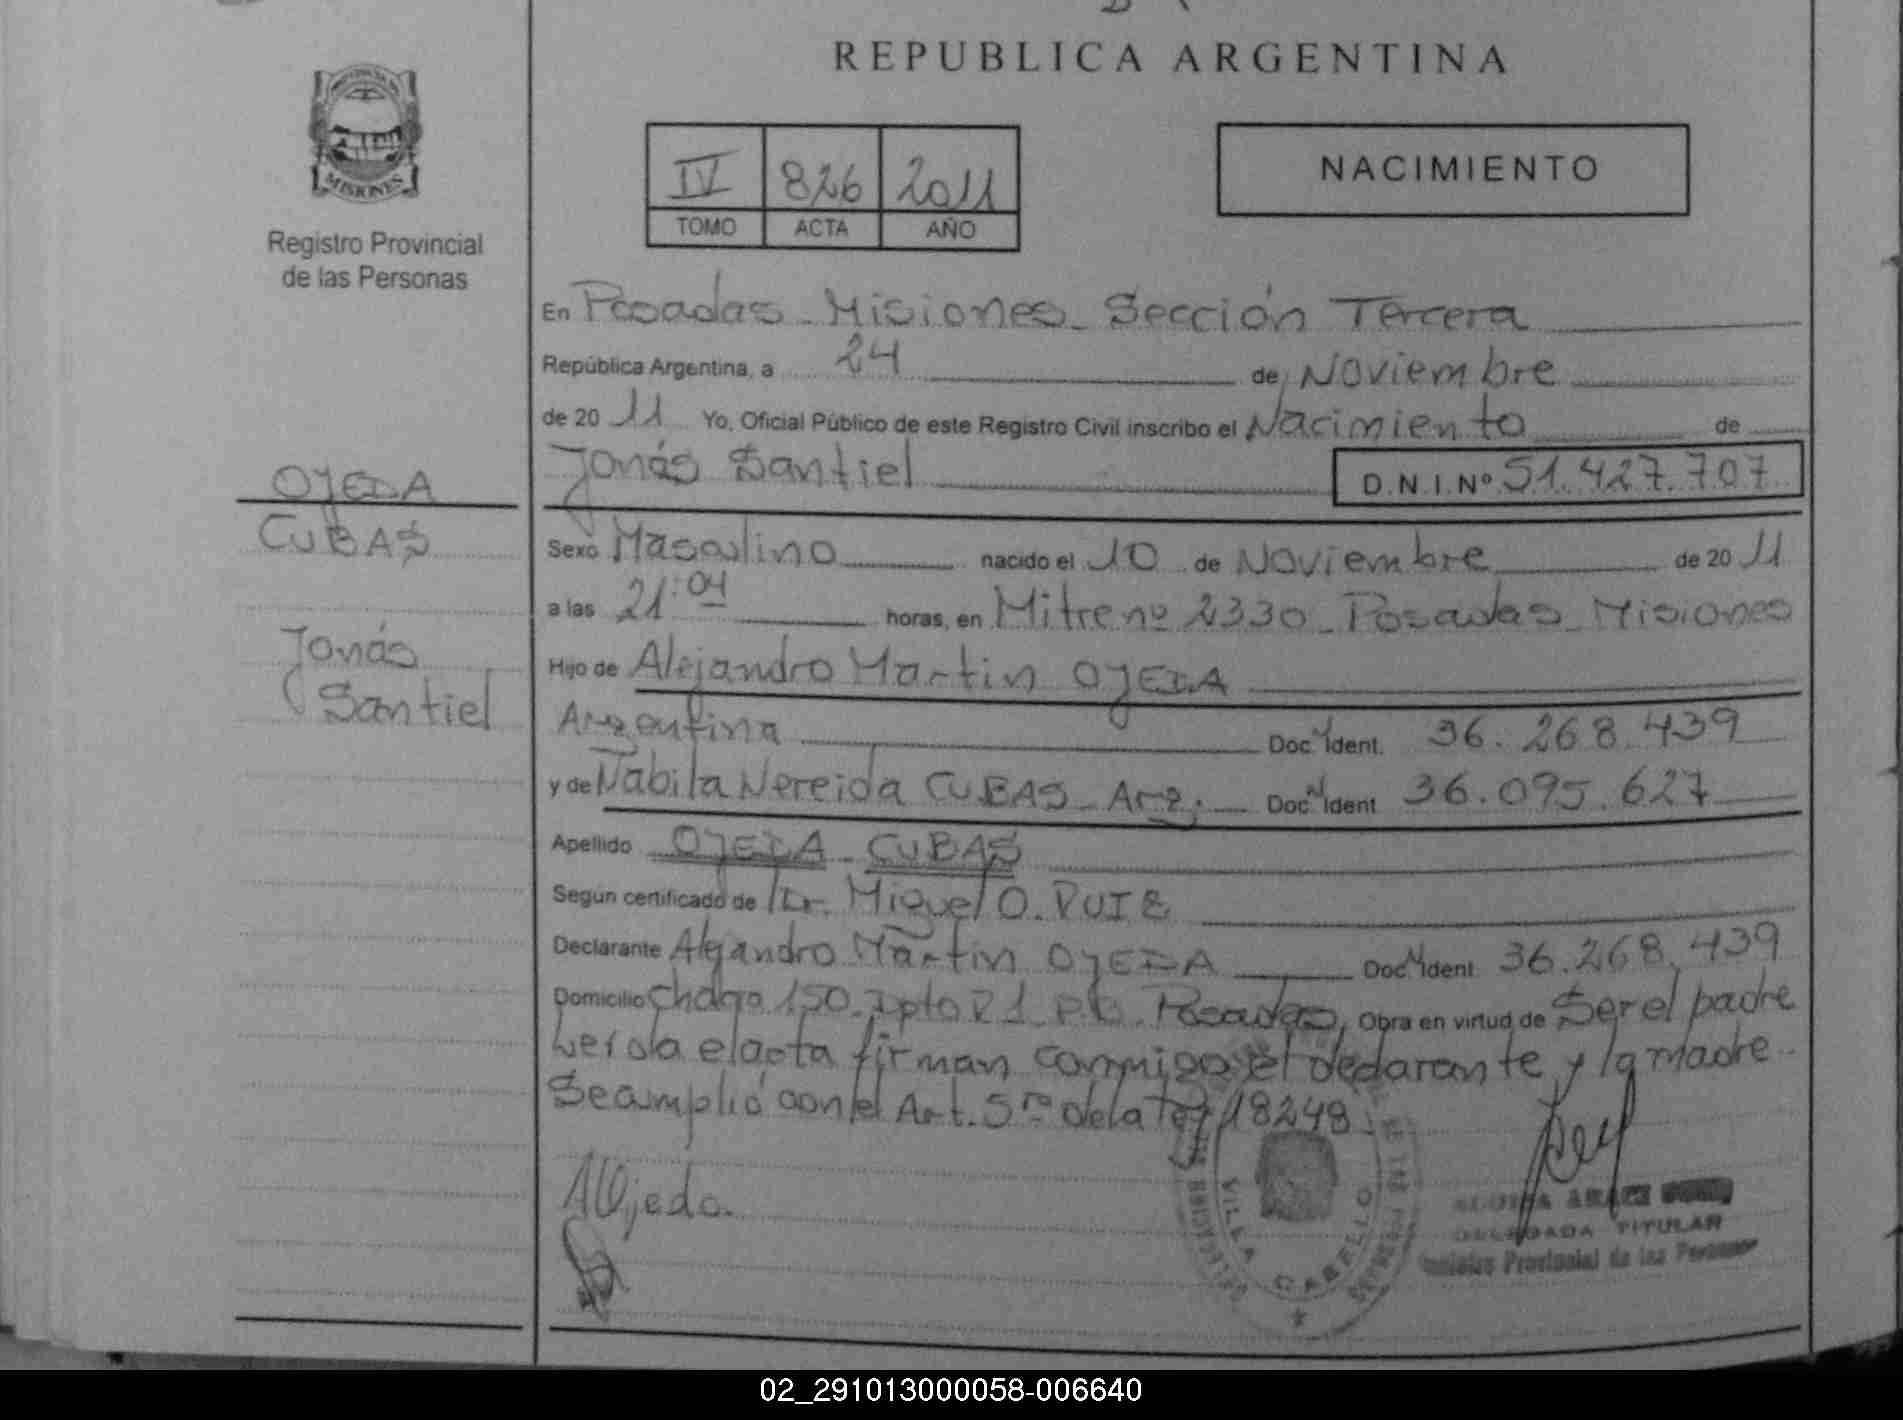 REPUBLICA ARGENTINA
PROVINCIA DE
MISIONES
Registro Provincial
de las Personas
IV 826 2011
TOMO ACTA AÑO
NACIMIENTO
En Posadas - Misiones - Sección Tercera
República Argentina, a 24 de Noviembre
de 20 11 Yo, Oficial Público de este Registro Civil inscribo el Nacimiento de
Jonás Santiel D.N.I.Nº 51.427.707
OJEDA
CUBAS
Jonás
Santiel
Sexo Masculino nacido el 10 de Noviembre de 20 11
a las 21:04 horas, en Mitre nº 2330 - Posadas - Misiones
Hijo de Alejandro Martin OJEDA
Argentina Doc. Ident. 36.268.439
y de Nabila Nereida CUBAS - Arg. Doc. Ident 36.095.627
Apellido OJEDA - CUBAS
Según certificado de Dr. Miguel O. RUIZ
Declarante Alejandro Martin OJEDA Doc. Ident 36.268.439
Domicilio 150 - Dpto P.B. Posadas, Obra en virtud de Ser el padre
Leída el acta firman conmigo el declarante y la madre
Se amplió con el Art. 5ro de la 18248.
AOjeda.
VILLA CABELLO
DELEGADA TITULAR
Provincial de las Personas
02_291013000058-006640